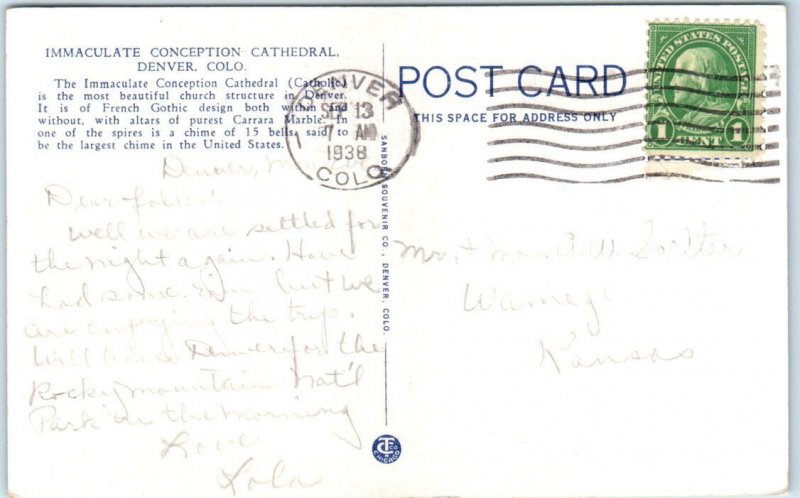 IMMACULATE CONCEPTION CATHEDRAL,
DENVER, COLO.
The Immaculate Conception Cathedral (Catholic)
is the most beautiful church structure in Denver.
It is of French Gothic design both within and
without, with altars of purest Carrara Marble. In
one of the spires is a chime of 15 bells, said to
be the largest chime in the United States.
Denver,
Dear folks:
Well we are settled for
the night again. Have
had some rain but we
are enjoying the trip.
Will leave Denver for the
Rocky Mountain Nat'l
Park in the morning
Love
Lola
DENVER
SEP 13
7 AM
1938
COLO.
SANBORN SOUVENIR CO., DENVER, COLO.
CT CO
CHICAGO
POST CARD
THIS SPACE FOR ADDRESS ONLY
UNITED STATES POSTAGE
FRANKLIN
1 CENT 1
Mr. + Mrs. A. W. Solter
Wamego
Kansas